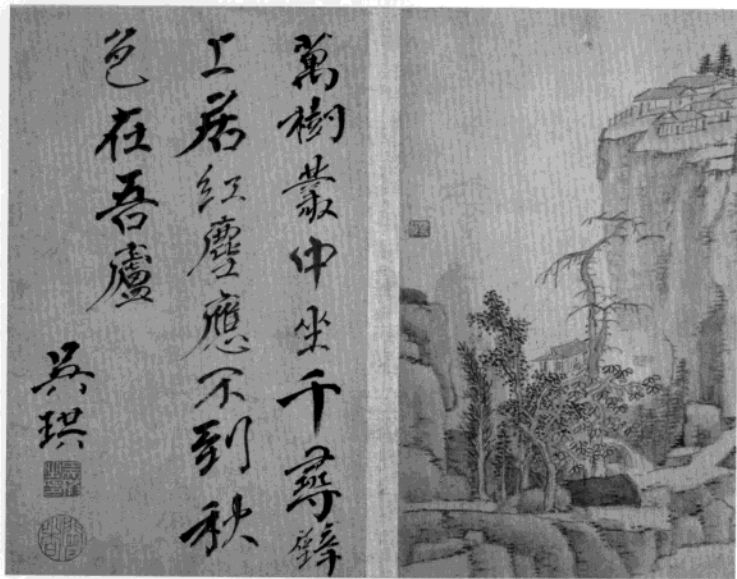 萬樹叢中坐千尋壁
上居紅塵應不到秋
色在吾廬
吳珙